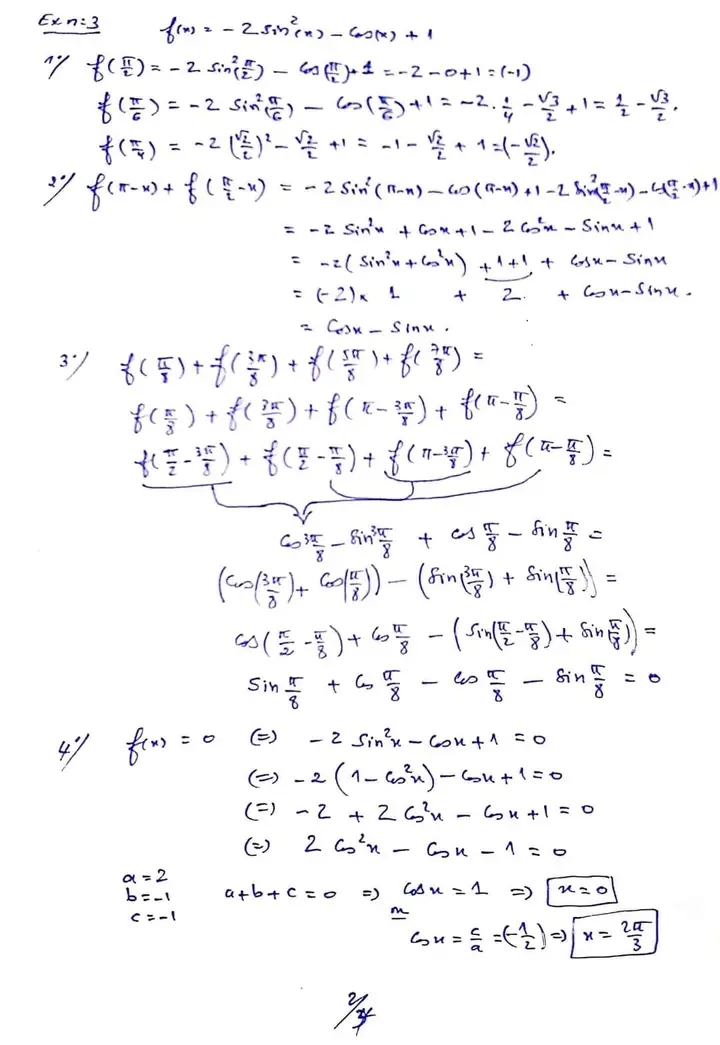 Ex n=3 f(x) = -2 sin²(x) - cos(x) + 1
1°/ f(π/2) = -2 sin²(π/2) - cos(π/2) + 1 = -2 - 0 + 1 = (-1)
f(π/6) = -2 sin²(π/6) - cos(π/6) + 1 = -2 · 1/4 - √3/2 + 1 = 1/2 - √3/2.
f(π/4) = -2 (√2/2)² - √2/2 + 1 = -1 - √2/2 + 1 = (-√2/2).
2°/ f(π-x) + f(π/2-x) = -2 sin²(π-x) - cos(π-x) + 1 - 2 sin²(π/2-x) - cos(π/2-x) + 1
= -2 sin²x + cosx + 1 - 2 cos²x - sinx + 1
= -2 (sin²x + cos²x) + 1 + 1 + cosx - sinx
= (-2) × 1 + 2 + cosx - sinx.
= cosx - sinx.
3°/ f(π/8) + f(3π/8) + f(5π/8) + f(7π/8) =
f(π/8) + f(3π/8) + f(π - 3π/8) + f(π - π/8) =
f(π/2 - 3π/8) + f(π/2 - π/8) + f(π - 3π/8) + f(π - π/8) =
cos 3π/8 - sin 3π/8 + cos π/8 - sin π/8 =
(cos(3π/8) + cos(π/8)) - (sin(3π/8) + sin(π/8)) =
cos(π/2 - π/8) + cos π/8 - (sin(π/2 - π/8) + sin(π/8)) =
sin π/8 + cos π/8 - cos π/8 - sin π/8 = 0
4°/ f(x) = 0 (=) -2 sin²x - cosx + 1 = 0
(=) -2 (1 - cos²x) - cosx + 1 = 0
(=) -2 + 2 cos²x - cosx + 1 = 0
(=) 2 cos²x - cosx - 1 = 0
a = 2
b = -1 a + b + c = 0 => cosx = 1 => x = 0
c = -1
cosx = c/a = (-1/2) => x = 2π/3